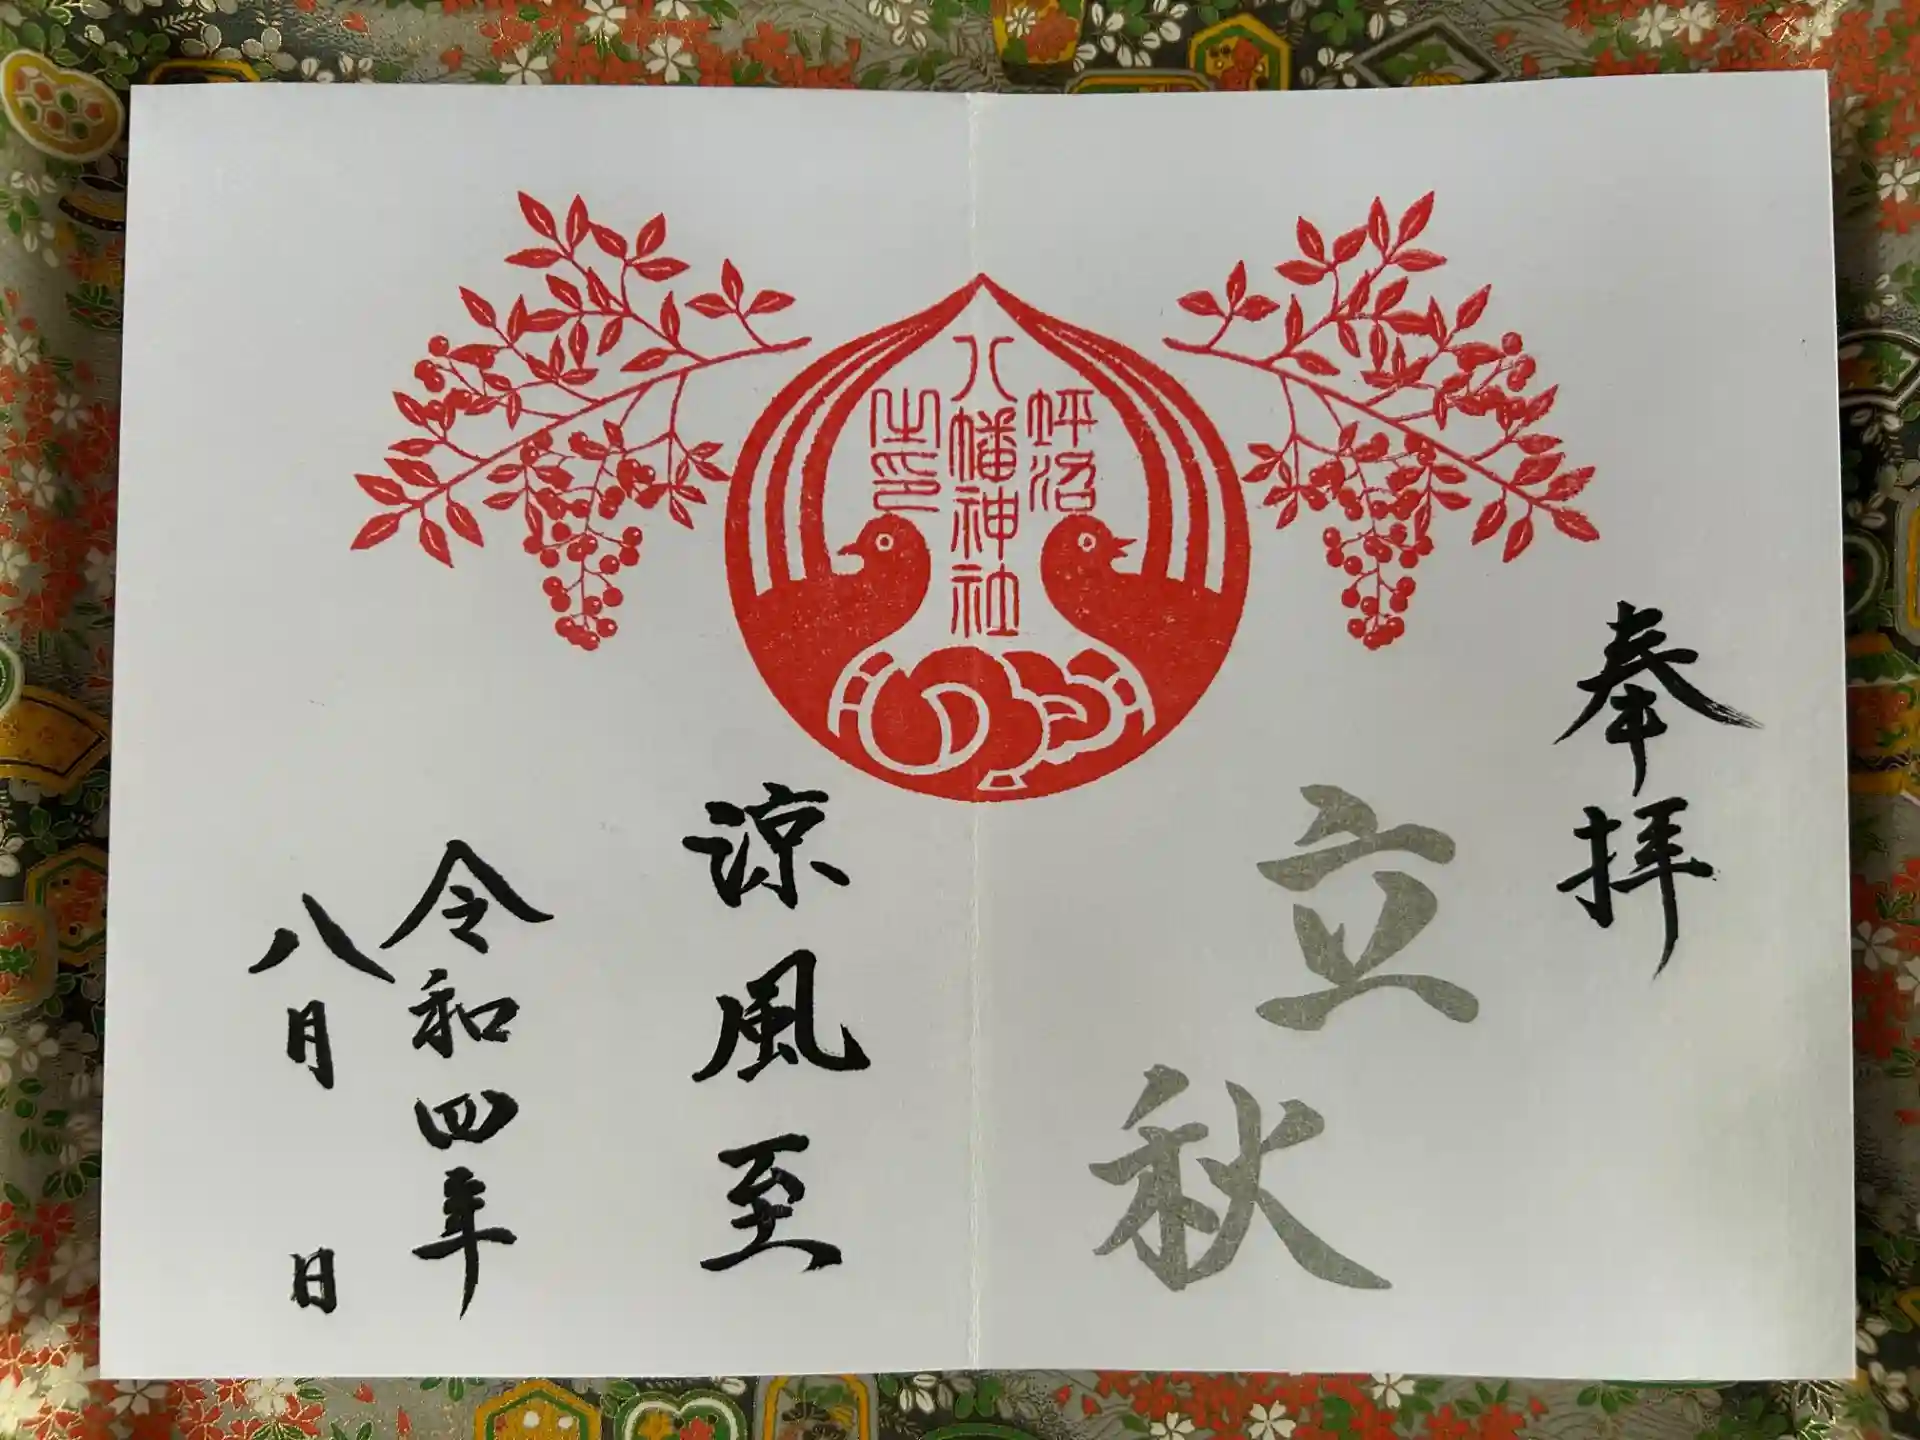 奉拝
立秋
坪沼
八幡神社
之印
涼風至
令和四年
八月　日